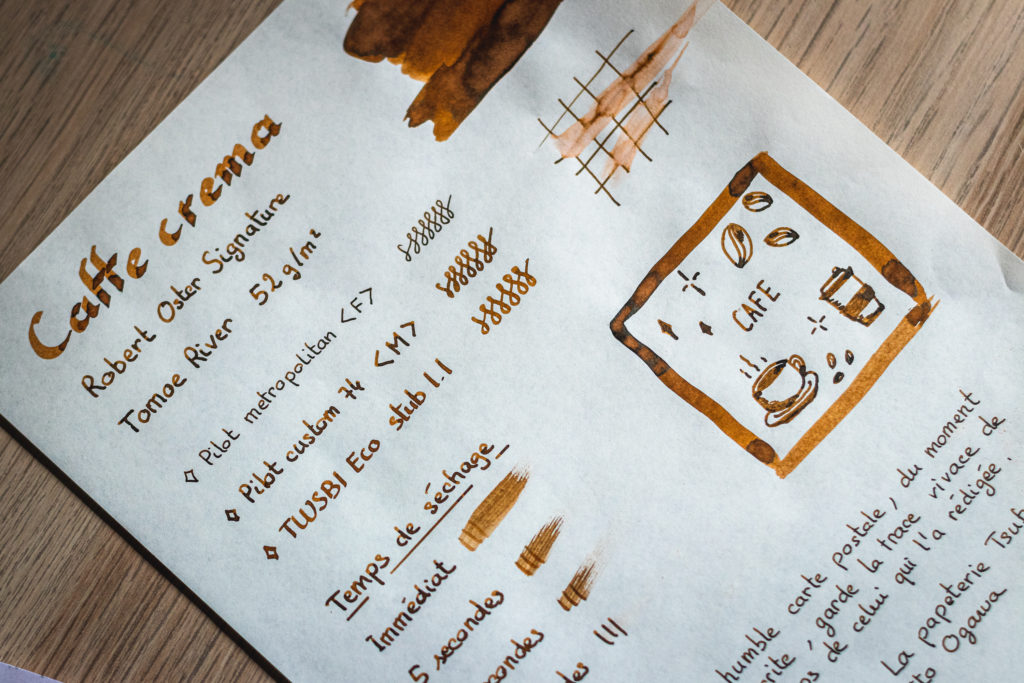 Caffe crema
Robert Oster Signature
Tomoe River 52 g/m²
Pilot metropolitan <F>
Pilot custom 74 <M>
TWSBI Eco stub 1.1
Temps de séchage
Immédiat
5 secondes
CAFE
humble carte postale, du moment
, garde la trace vivace de
de celui qui l'a rédigée.
La papeterie
Ogawa